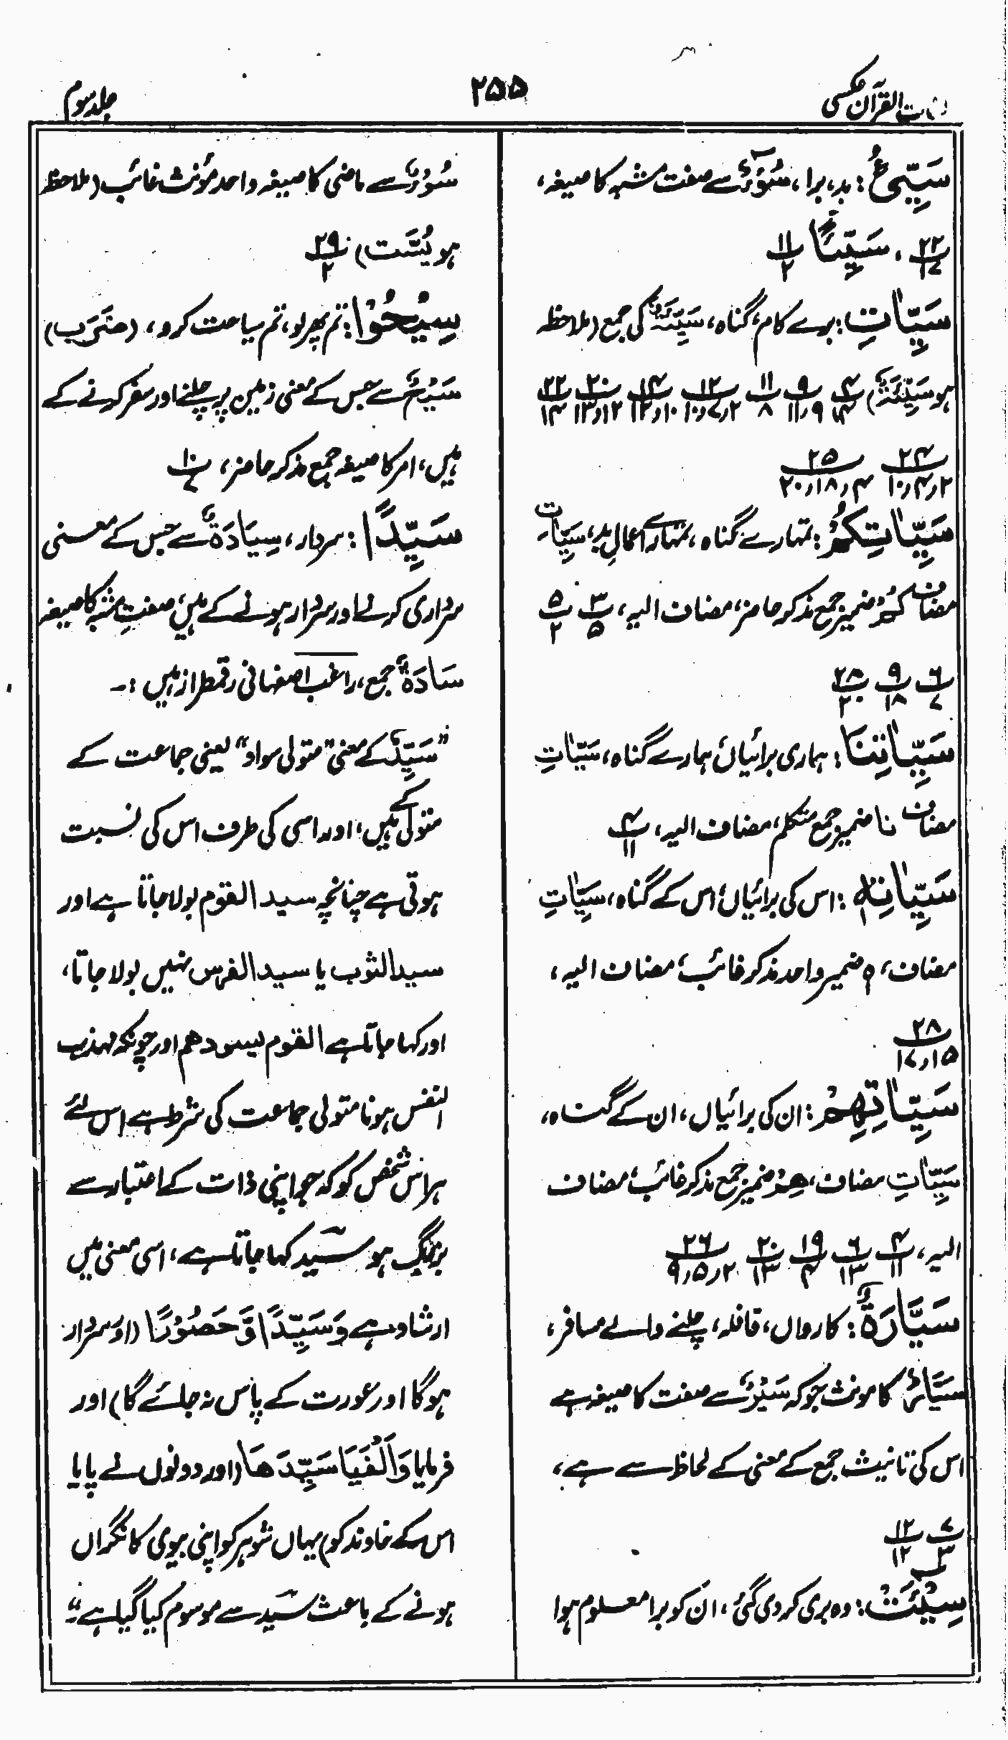 لغات القرآن عکسی
۲۵۵
جلد سوم
سَیِّیءٌ: بد، برا، سُوْءٌ سے صفت مشبہ کا صیغہ،
۲۲/۱۷ ، سَیِّئًا ۱۱/۲
سَیِّاٰتِ: برے کام، گناہ، سَیِّئَۃٌ کی جمع (ملاحظہ
ہو سَیِّئَۃٌ)
۲۴/۲،۴،۱۰ ۲۵/۴،۱۸،۲۰
سَیِّاٰتِکُمْ: تمہارے گناہ، تمہارے اعمالِ بد، سَیِّاٰتِ
مضاف کُمْ ضمیر جمع مذکر حاضر، مضاف الیہ، ۳/۵ ۵/۲
۶/۷ ۹/۱۸ ۲۸/۲۰
سَیِّاٰتِنَا: ہماری برائیاں، ہمارے گناہ، سَیِّاٰتِ
مضاف نا ضمیر جمع متکلم، مضاف الیہ، ۴/۱۱
سَیِّاٰتِہٖ: اس کی برائیاں، اس کے گناہ، سَیِّاٰتِ
مضاف، ہٖ ضمیر واحد مذکر غائب، مضاف الیہ،
۲۸/۱۵،۱۷
سَیِّاٰتِہِمْ: ان کی برائیاں، ان کے گناہ،
سَیِّاٰتِ مضاف، ھِمْ ضمیر جمع مذکر غائب، مضاف
الیہ، ۴/۱۱ ۶/۱۳ ۱۹/۴ ۲۰/۱۳ ۲۶/۲،۵،۹
سَیَّارَۃٌ: کارواں، قافلہ، چلنے والے مسافر،
سَیَّارٌ کا مونث جو کہ سَیْرٌ سے صفت کا صیغہ ہے
اس کی تانیث جمع کے معنی کے لحاظ سے ہے،
۷/۳ ۱۲/۱۲
سِیْٓئَتْ: وہ بری کردی گئی، ان کو برا معلوم ہوا
سُوْءٌ سے ماضی کا صیغہ واحد مؤنث غائب (ملاحظہ
ہو یُسَّت) ۲۹/۲
سِیْحُوْا: تم پھر لو، تم سیاحت کرو، (ضَرَبَ)
سَیْحٌ سے جس کے معنی زمین پر چلنے اور سفر کرنے کے
ہیں، امر کا صیغہ جمع مذکر حاضر، ۱۰/۷
سَیِّدًا: سردار، سِیَادَۃٌ سے جس کے معنی
سرداری کرنے اور سردار ہونے کے ہیں، صفتِ مشبہ کا صیغہ
سَادَۃٌ جمع، راغب اصفہانی رقمطراز ہیں :۔
”سَیِّدٌ کے معنی ”متولی سواد“ یعنی جماعت کے
متولی کے ہیں، اور اسی کی طرف اس کی نسبت
ہوتی ہے چنانچہ سید القوم بولا جاتا ہے اور
سید الثوب یا سید الفرس نہیں بولا جاتا،
اور کہا جاتا ہے القوم یسودھم اور چونکہ مہذب
النفس ہونا متولی جماعت کی شرط ہے اس لئے
ہر اس شخص کو کہ جو اپنی ذات کے اعتبار سے
بزرگ ہو سید کہا جاتا ہے، اسی معنی میں
ارشاد ہے وَسَیِّدًا وَّحَصُوْرًا (اور سردار
ہوگا اور عورت کے پاس نہ جائے گا) اور
فرمایا وَاَلْفَیَا سَیِّدَھَا (اور دونوں نے پایا
اس کے خاوند کو) یہاں شوہر کو اپنی بیوی کا نگراں
ہونے کے باعث سید سے موسوم کیا گیا ہے“۔